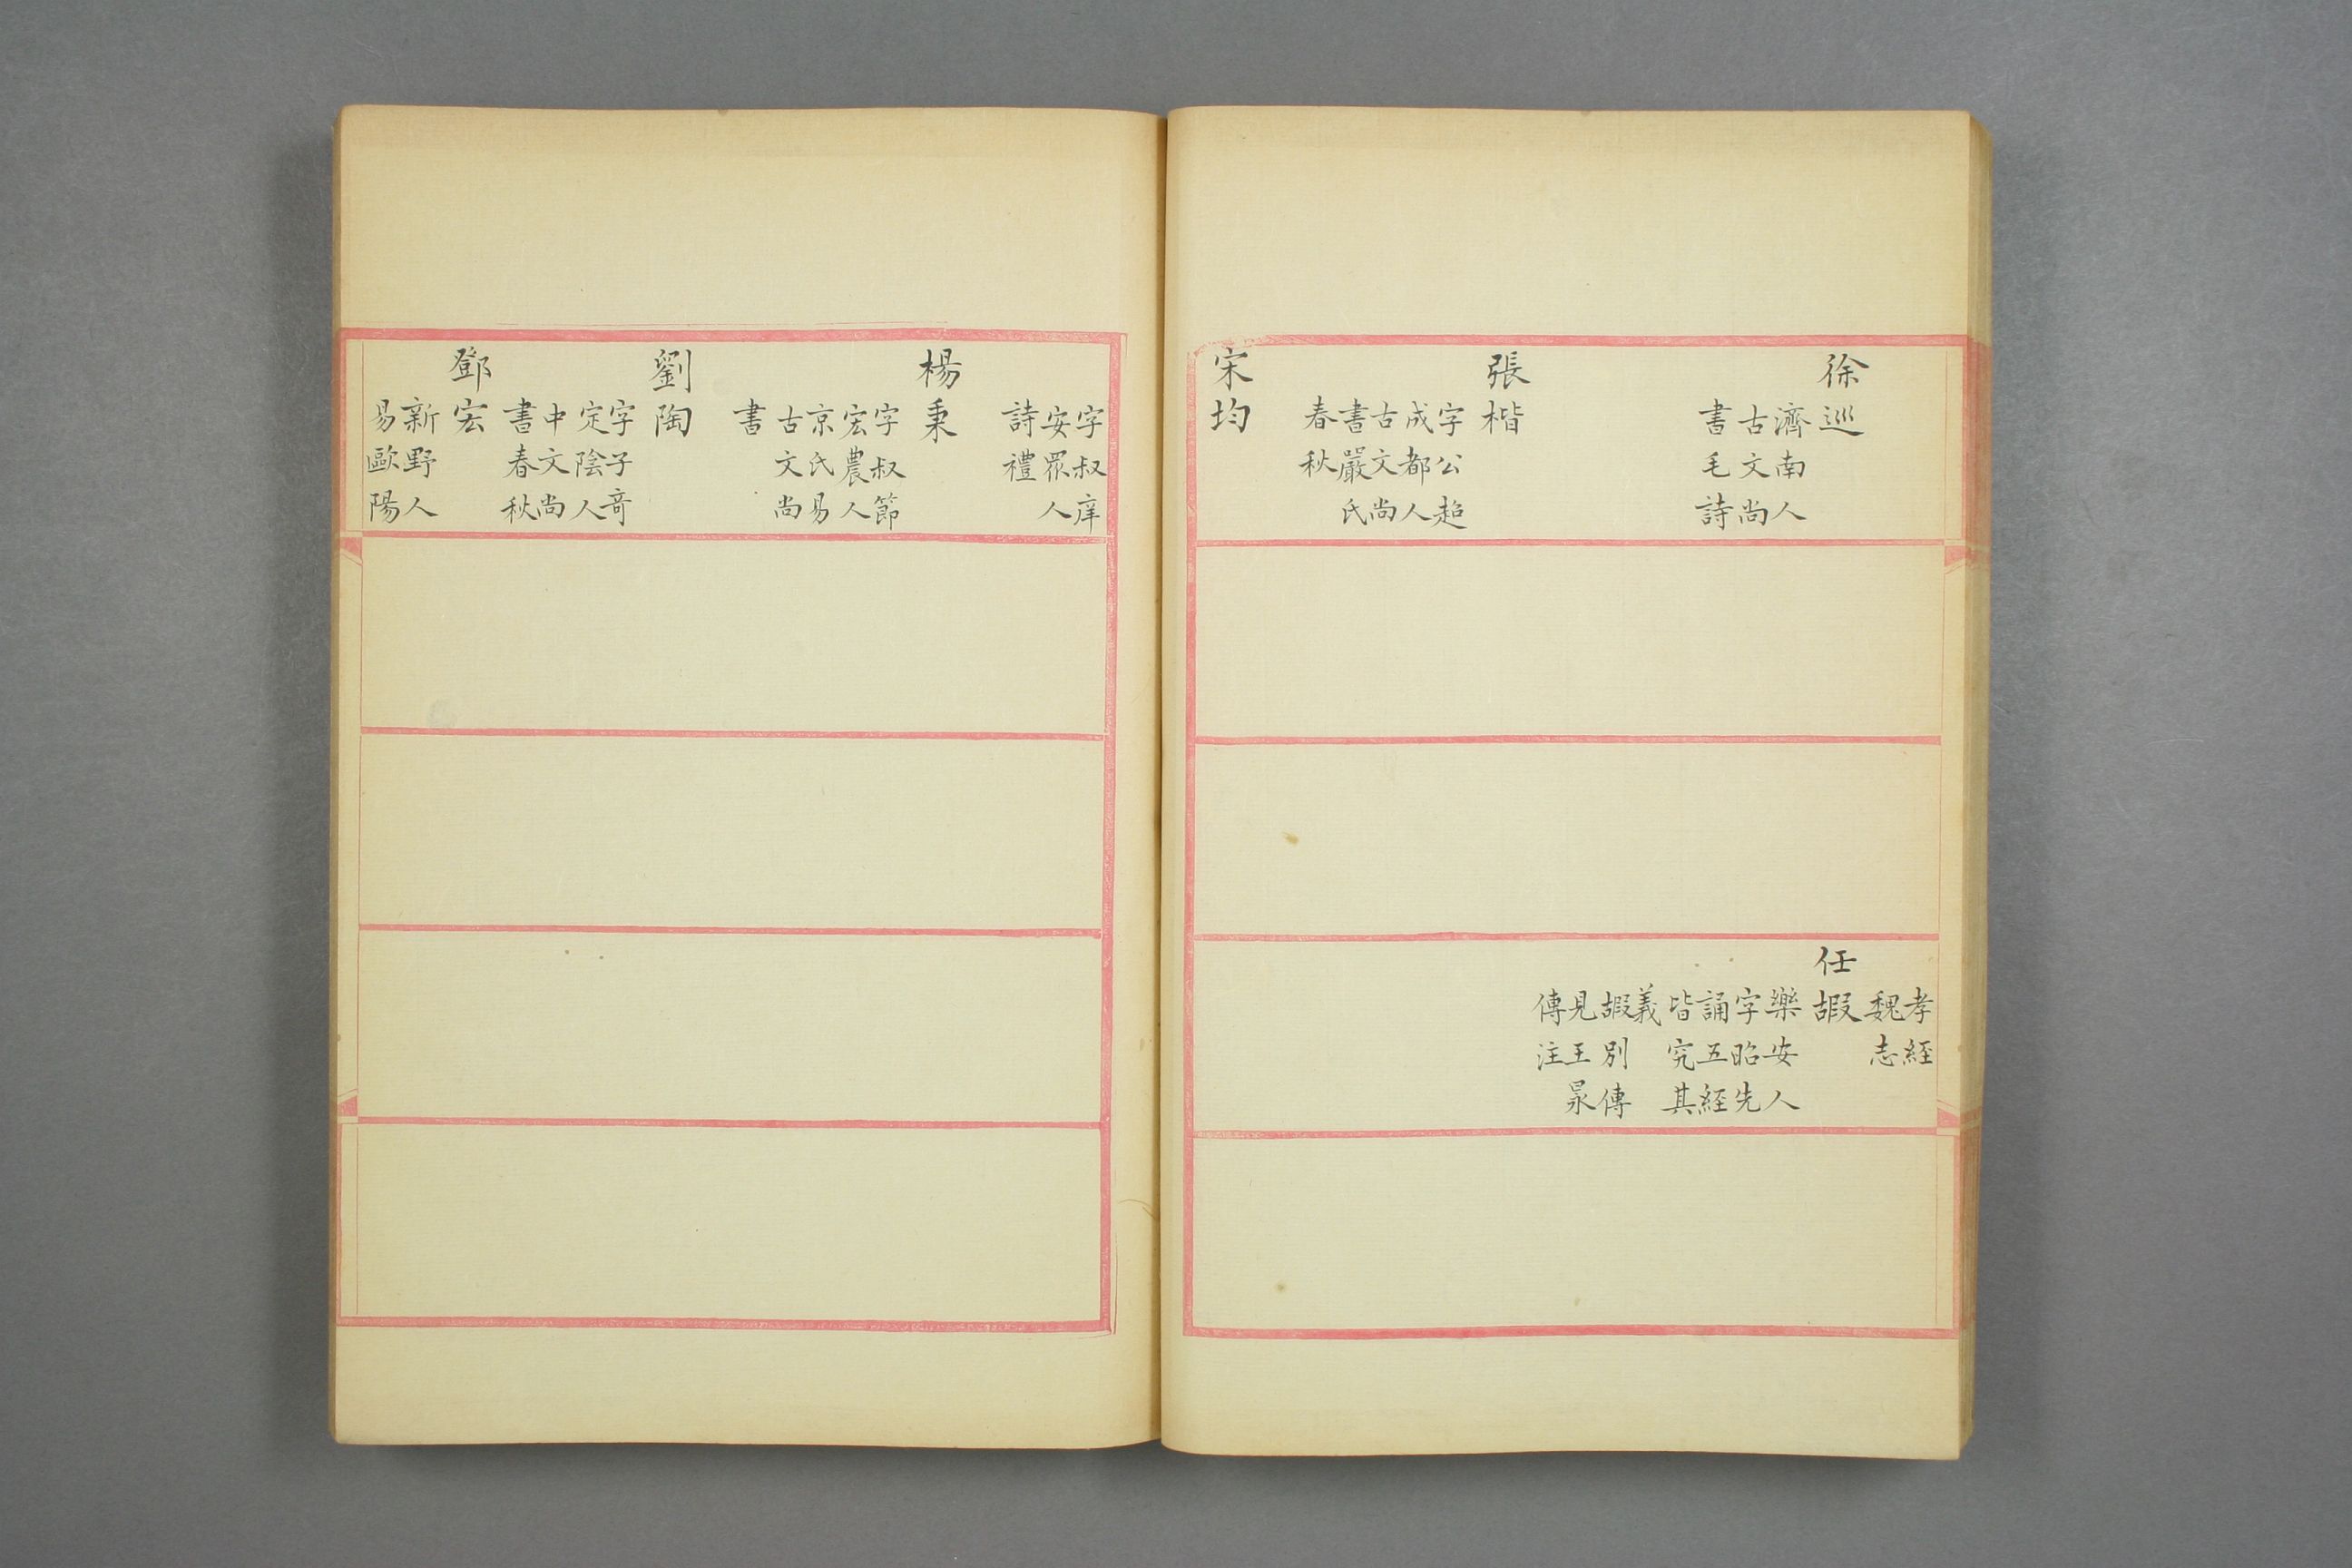 徐巡
濟南人
古文尚
書毛詩
張楷
字公超
成都人
古文尚
書嚴氏
春秋
宋均
孝經
魏志
任嘏
樂安人
字昭先
誦五經
皆究其
義
嘏別傳
見王㫤
傳注
字叔庠
安眾人
詩禮
楊秉
字叔節
宏農人
京氏易
古文尚
書
劉陶
字子奇
定陰人
中文尚
書春秋
鄧宏
新野人
易歐陽